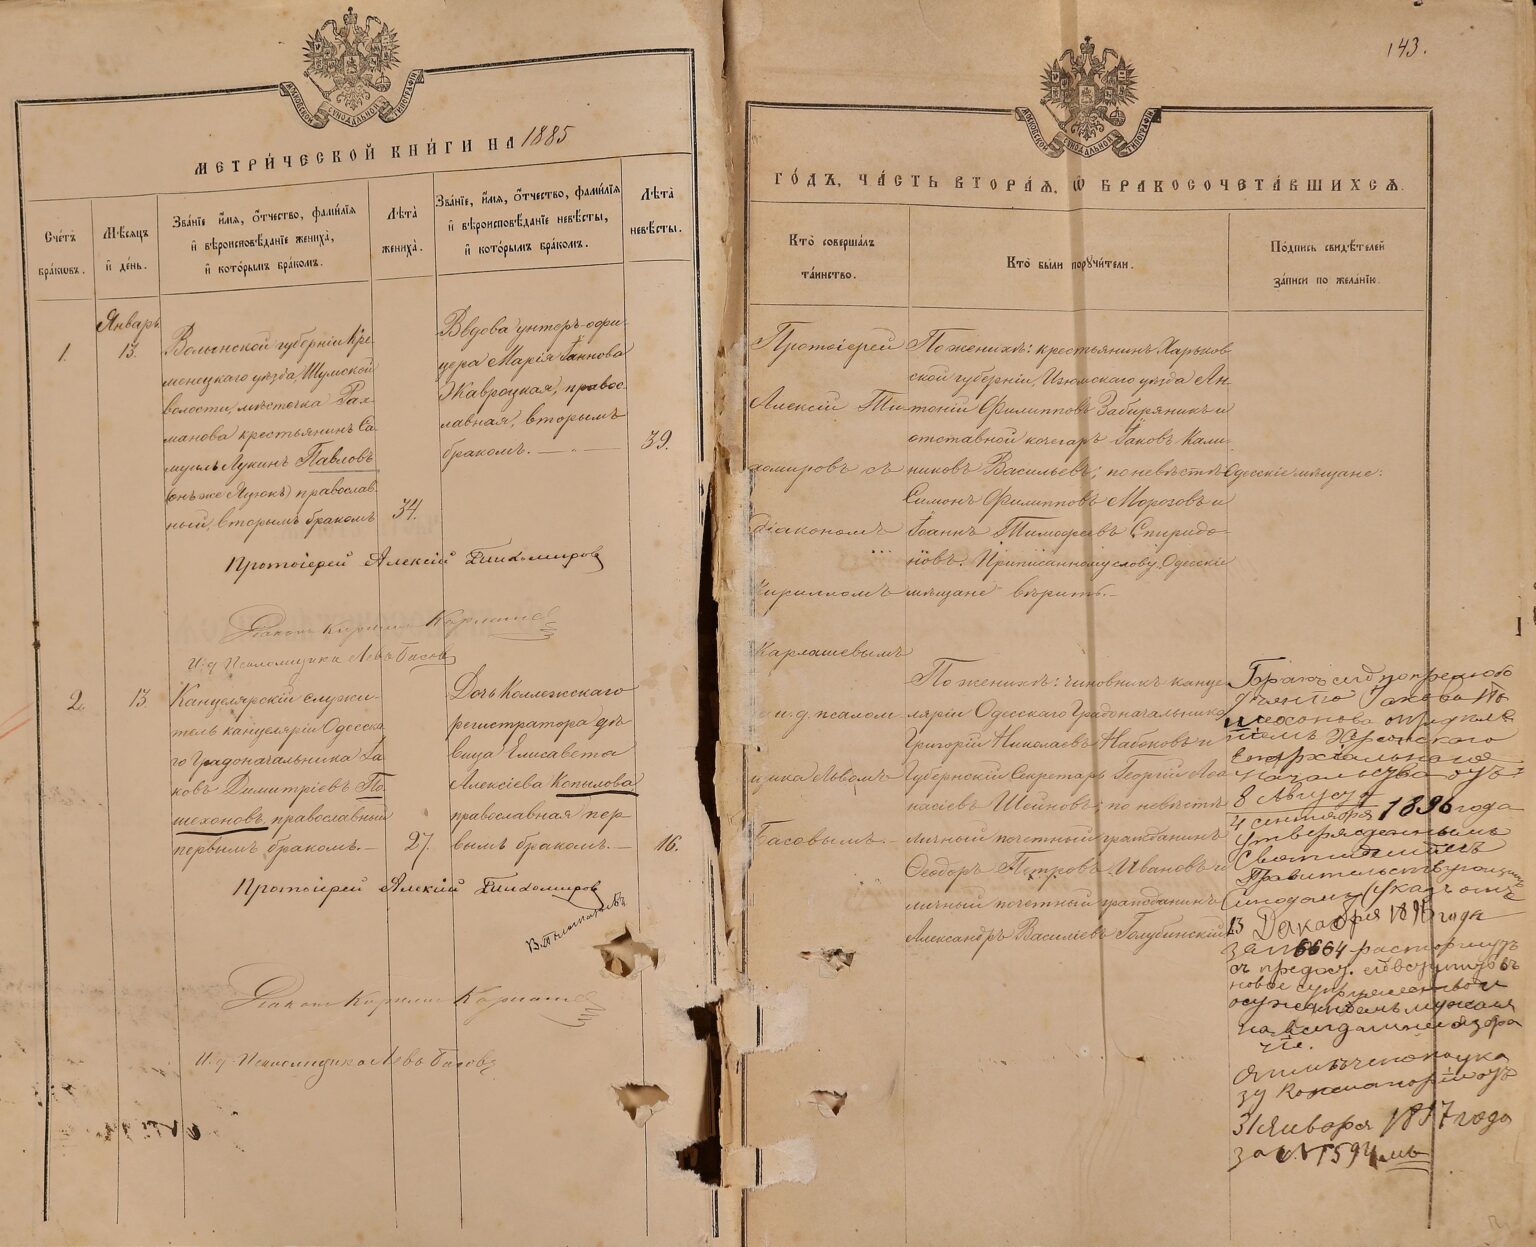 МОСКОВСКОЙ СѴНОДАЛЬНОЙ ТИПОГРАФІИ
МЕТРИ́ЧЕСКОЙ КНИ́ГИ НА 1885
Сче́тъ бра́ковъ.
Мѣ́сяцъ и де́нь.
Зва́ніе, и́мя, о́тчество, фами́лія
и вѣроисповѣ́даніе жениха̀,
и кото́рымъ бра́комъ.
Лѣ́та жениха̀.
Зва́ніе, и́мя, о́тчество, фами́лія
и вѣроисповѣ́даніе невѣ́сты,
и кото́рымъ бра́комъ.
Лѣ́та невѣ́сты.
1.
Январь
13.
Волынской губерніи Кре-
менецкаго уѣзда, Шумской
волости, мѣстечка Рах-
манова крестьянинъ Са-
муилъ Лукинъ Павловъ
(онъ же Яцюкъ) православ-
ный, вторымъ бракомъ
34.
Вдова унтеръ-офи-
цера Марія Іаннова
Жавроцкая, правос-
лавная, вторымъ
бракомъ. — „ —
39.
Протоіерей Алексій Тихомировъ
Діаконъ Кириллъ Карлашевъ
И. д. Псаломщика Левъ Басовъ
2.
13.
Канцелярскій служи-
тель канцеляріи Одесска-
го Градоначальника Іа-
ковъ Димитріевъ По-
шехоновъ, православный
первымъ бракомъ.—
27.
Дочь Коллежскаго
регистратора дѣ-
вица Елисавета
Алексіева Копылова
православная пер-
вымъ бракомъ.—
16.
Протоіерей Алексій Тихомировъ
Діаконъ Кириллъ Карлашевъ
И. д. Псаломщика Левъ Басовъ
143.
МОСКОВСКОЙ СѴНОДАЛЬНОЙ ТИПОГРАФІИ
ГО́ДЪ, ЧА́СТЬ ВТОРА́Я, Ѡ БРАКОСОЧЕТА́ВШИХСЯ.
Кто̀ соверша́лъ
та́инство.
Кто̀ бы́ли поручи́тели.
По́дпись свидѣ́телей
за́писи по жела́нію.
Протоіерей
Алексій Ти-
хомировъ съ
діакономъ
Кирилломъ
Карлашевымъ
и и. д. псалом-
щика Львомъ
Басовымъ.—
По женихѣ: крестьянинъ Харьков-
ской губерніи, Изюмскаго уѣзда Ан-
тоній Филипповъ Забиряникъ и
отставной кочегаръ Іаковъ Кали-
никовъ Васильевъ; по невѣстѣ Одесскіе мѣщане:
Симонъ Филипповъ Морозовъ и
Іоаннъ Тимофеевъ Спиридо-
новъ. Приписанному слову „Одесскіе
мѣщане“ вѣрить.—
По женихѣ: чиновникъ канце-
ляріи Одесскаго Градоначальника
Григорій Николаевъ Набоковъ и
Губернскій Секретарь Георгій Аѳа-
насіевъ Шейновъ; по невѣстѣ
личный почетный гражданинъ
Ѳеодоръ Петровъ Ивановъ и
личный почетный гражданинъ
Александръ Василіевъ Голубинскій
Бракъ сей по прелюбо
дѣянію Іакова По
шехонова опредѣле
ніемъ Херсонскаго
Епархіальнаго
Начальства отъ
8 Августа
4 сентября 1896 года
утвержденнымъ
Святѣйшимъ
Правительствующимъ
Синодомъ (указъ отъ
13 Декабря 1896 года
за № 6664 расторгнутъ
съ предост. ей вступить въ
новое супружество и
осужденіемъ мужа ея
на всегдашнее безбра
чіе.
Отмѣчено по ука
зу Консисторіи отъ
31 Января 1897 года
за № 1594 мъ